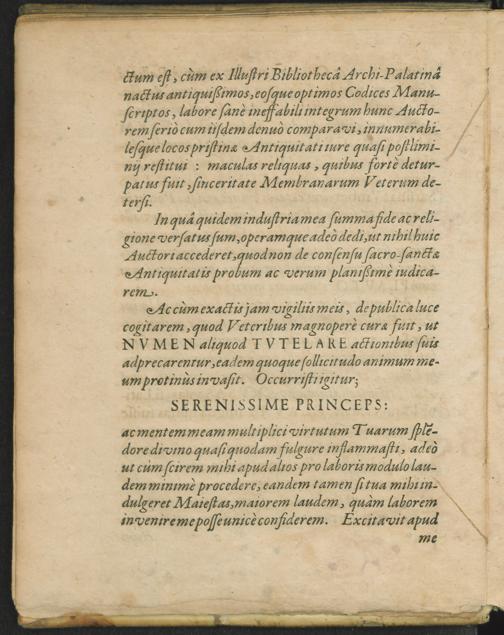 ctum est, cùm ex Illustri Bibliothecâ Archi-Palatinâ
nactus antiquißimos, eosque optimos Codices Manu-
scriptos, labore sanè ineffabili integrum hunc Aucto-
rem seriò cum iisdem denuò comparavi, innumerabi-
lesque locos pristinæ Antiquitati iure quasi postlimi-
nij restitui : maculas reliquas, quibus fortè detur-
patus fuit, sinceritate Membranarum Veterum de-
tersi.
In quâ quidem industria mea summa fide ac reli-
gione versatus sum, operamque adeò dedi, ut nihil huic
Auctori accederet, quod non de consensu sacro-sanctæ
Antiquitatis probum ac verum planißimè iudica-
rem.
Ac cùm exactis jam vigiliis meis, de publica luce
cogitarem, quod Veteribus magnoperè curæ fuit, ut
NVMEN aliquod TVTELARE actionibus suis
adprecarentur, eadem quoque sollicitudo animum me-
um protinùs invasit. Occurristi igitur;
SERENISSIME PRINCEPS:
ac mentem meam multiplici virtutum Tuarum splē-
dore divino quasi quodam fulgure inflammasti, adeò
ut cùm scirem mihi apud alios pro laboris modulo lau-
dem minimè procedere, eandem tamen si tua mihi in-
dulgeret Maiestas, maiorem laudem, quàm laborem
invenire me posse unicè confiderem. Excitavit apud
me